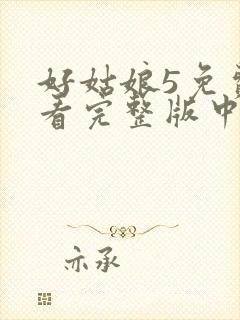 好姑娘5免费
看完整版中
亦承